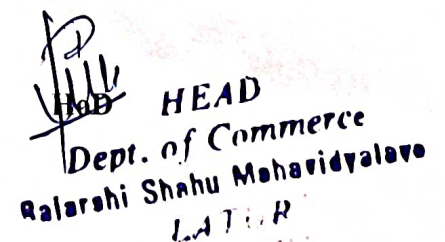 HoD HEAD
Dept. of Commerce
Rajarshi Shahu Mahavidyalaya
LATUR